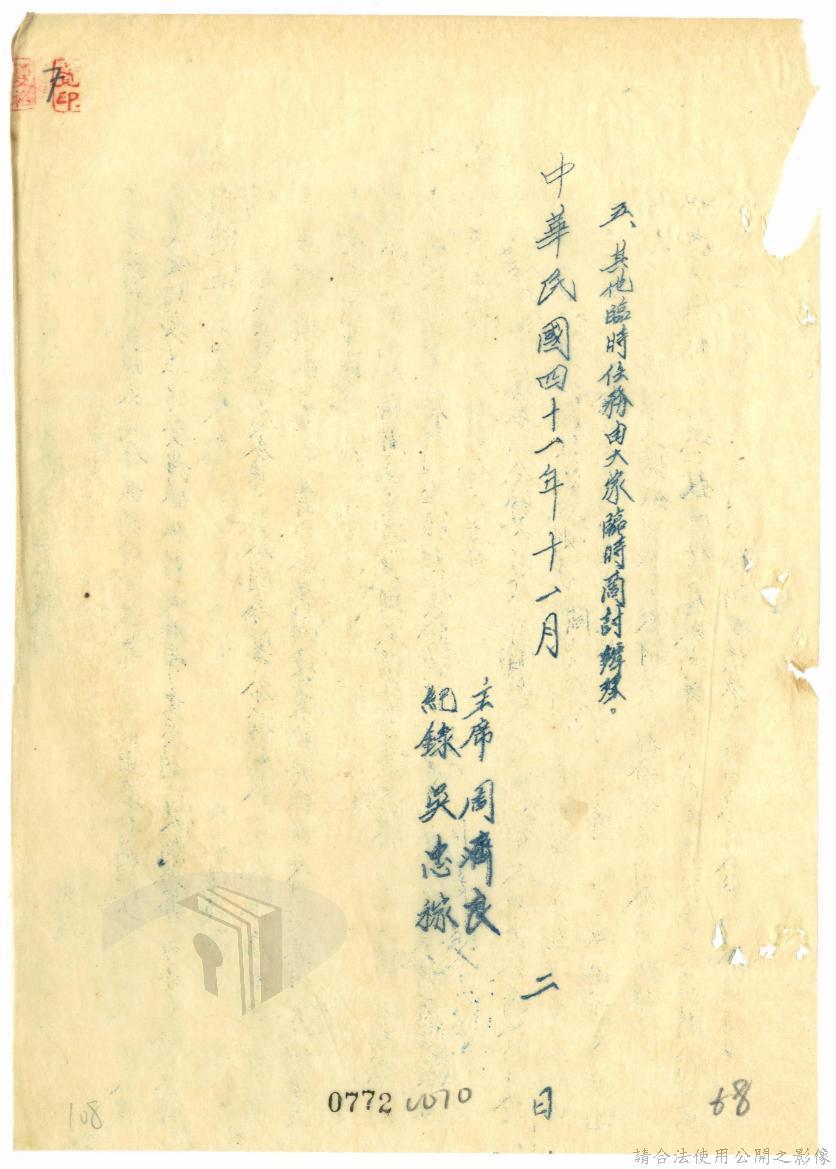 五、其他臨時任務由大家臨時商討辦理。
中華民國四十一年十一月二日
主席 周濟良
紀錄 吳忠稼
0772 0070
68
108
請合法使用公開之影像